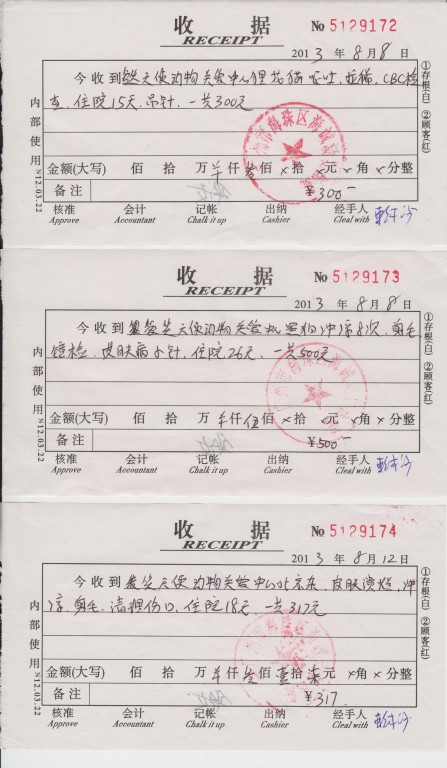 收 据
RECEIPT
No 5129172
2013 年 8 月 8 日
今收到 天使动物关爱中心 猫呕吐, CBC检
查, 住院15天, 吊针, 一共300元
金额(大写) 佰 拾 万 仟叁佰 × 拾 × 元 × 角 × 分整
备 注
¥300—
核准 会计 记帐 出纳 经手人
Approve Accountant Chalk it up Cashier Cleal with
①存根(白) ②顾客(红)
内部使用 N12.03.22
收 据
RECEIPT
No 5129173
2013 年 8 月 8 日
今收到 天使动物关爱 狗冲凉8次, 剪毛
镜检, 皮肤病小针, 住院26天, 一共500元
金额(大写) 佰 拾 万 仟伍佰 × 拾 × 元 × 角 × 分整
备 注
¥500—
核准 会计 记帐 出纳 经手人
Approve Accountant Chalk it up Cashier Cleal with
①存根(白) ②顾客(红)
内部使用 N12.03.22
收 据
RECEIPT
No 5129174
2013 年 8 月 12 日
今收到 天使动物关爱中心 皮肤 冲
凉, 剪毛, 清理伤口, 住院18天, 一共317元
金额(大写) 佰 拾 万 仟叁佰壹拾柒元 × 角 × 分整
备 注
¥317.
核准 会计 记帐 出纳 经手人
Approve Accountant Chalk it up Cashier Cleal with
①存根(白) ②顾客(红)
内部使用 N12.03.22